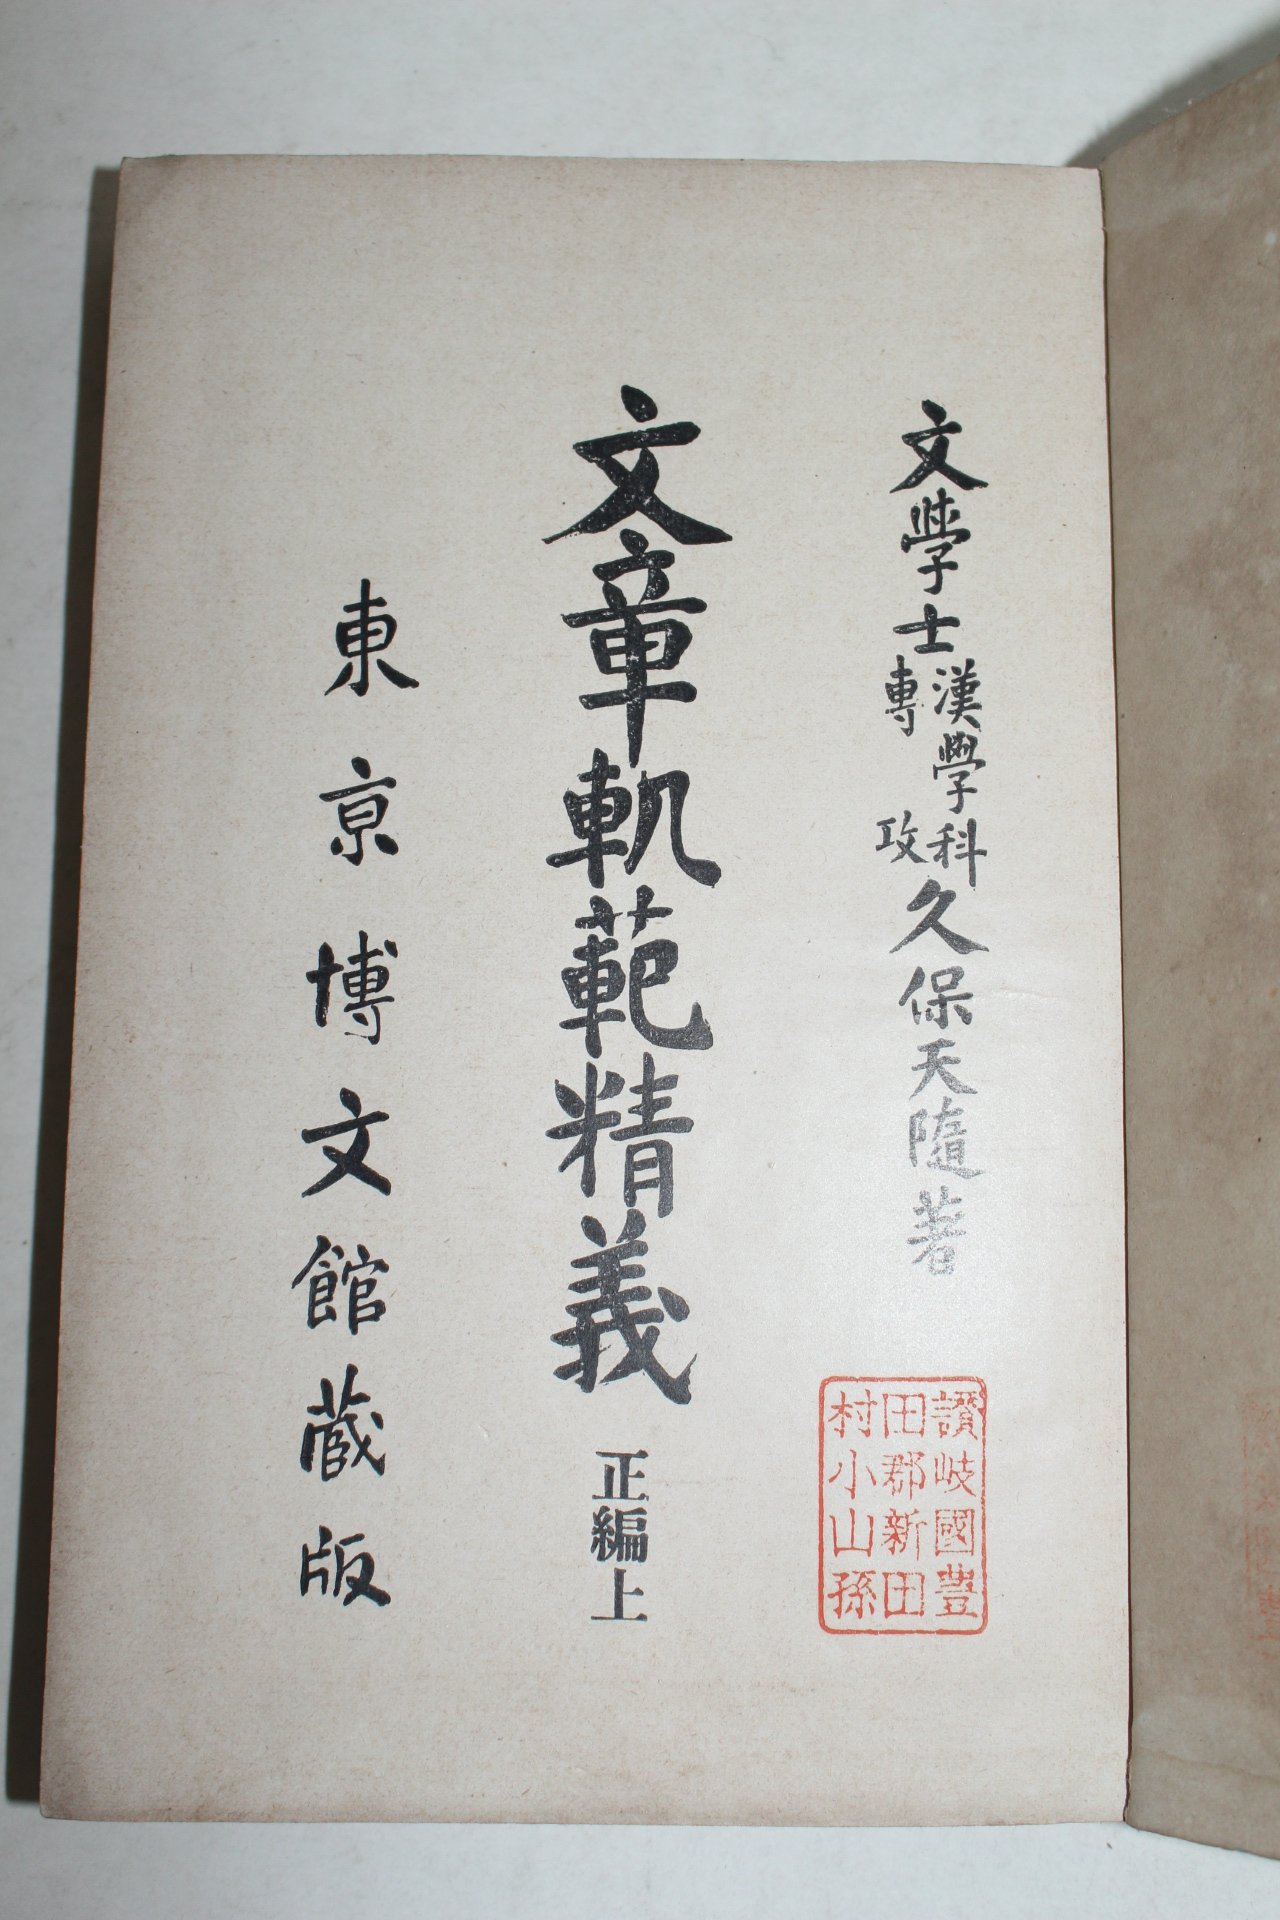 文學士
漢學科
專攻
久保天隨著
文章軌範精義 正編上
東京博文館蔵版
讃岐國豊
田郡新田
村小山孫